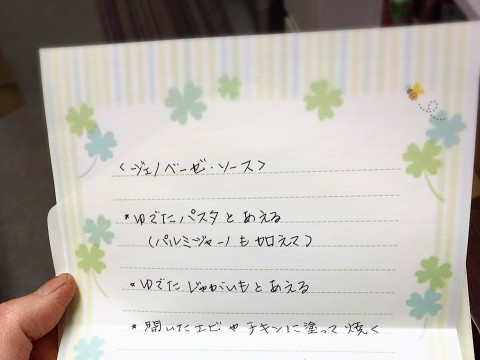 <ジェノベーゼ・ソース>
*ゆでたパスタとあえる
(パルミジャーノも加えて)
*ゆでたじゃがいもとあえる
*開いたエビやチキンに塗って焼く